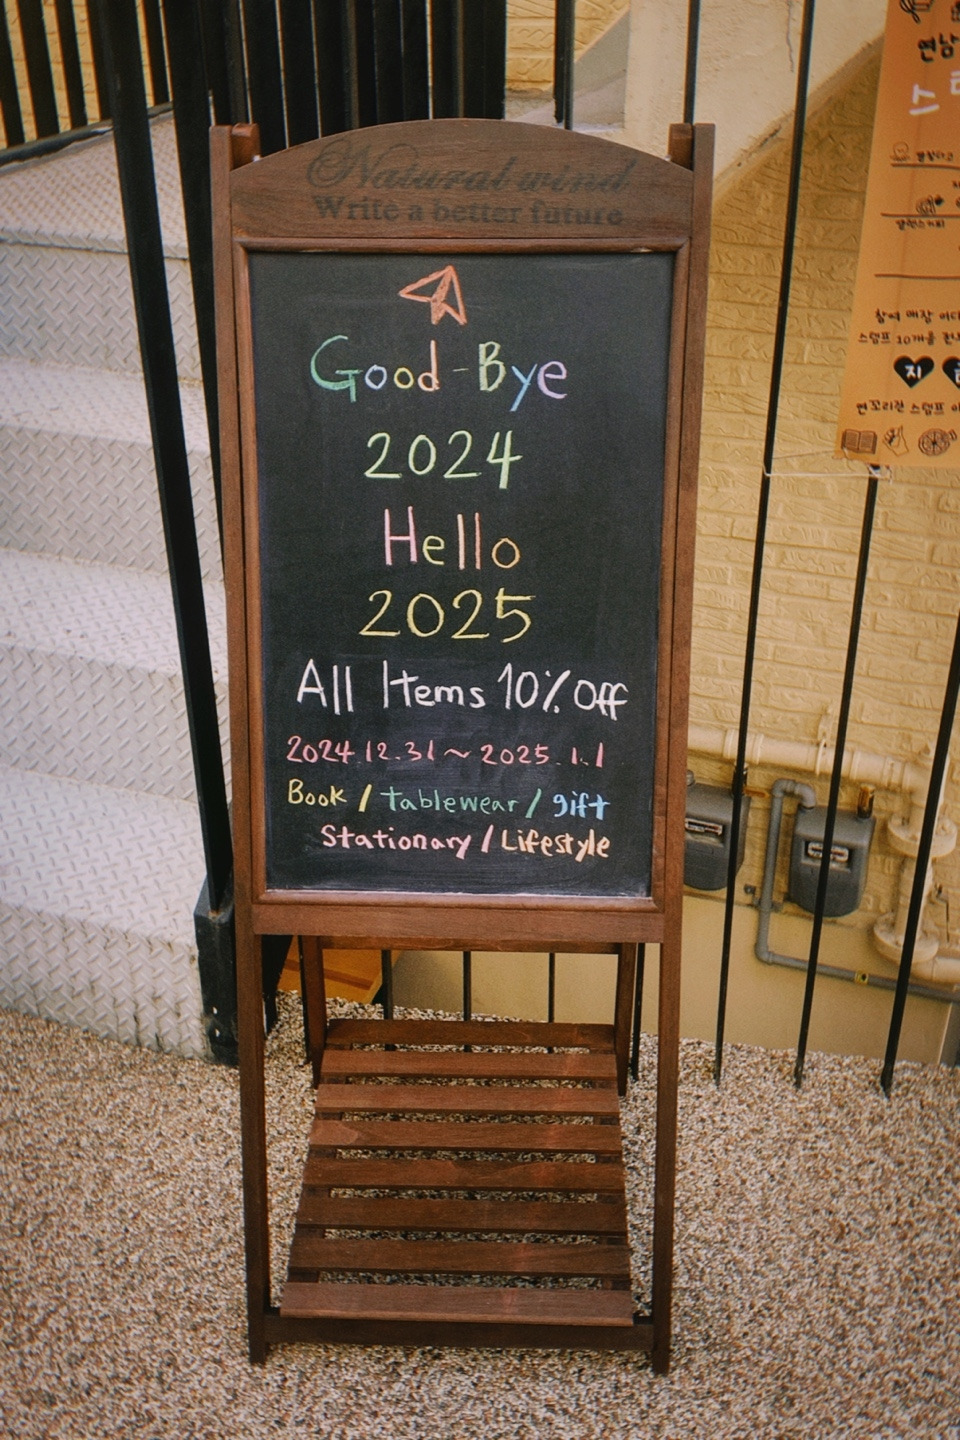 Natural wind
Write a better future
Good-Bye
2024
Hello
2025
All Items 10% Off
2024.12.31 ~ 2025.1.1
Book / tablewear / gift
Stationary / Lifestyle
연남
참여 매장 어디
스탬프 10개를
지
연꼬리관 스탬프